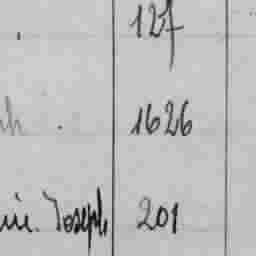 127
1626
Joseph 201